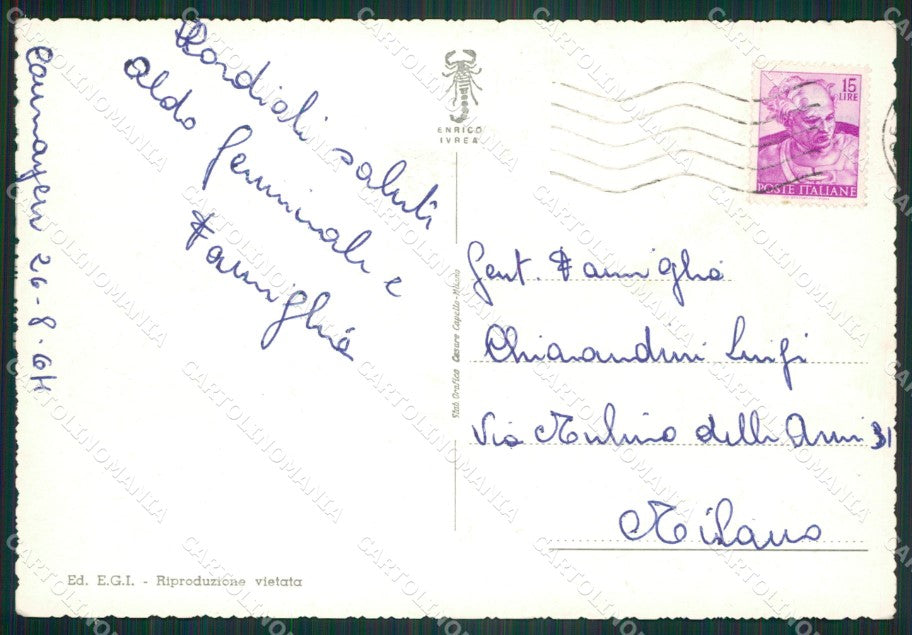 Courmayeur 26-8-64
Cordiali saluti
Aldo Geminale e
Famiglia
ENRICO
IVREA
15
LIRE
POSTE ITALIANE
Gent. Famiglia
Chiarandini Luigi
Via Mulino delle Armi 31
Milano
Stab. Grafico Cesare Capello-Milano
Ed. E.G.I. - Riproduzione vietata
CARTOLINOMANIA